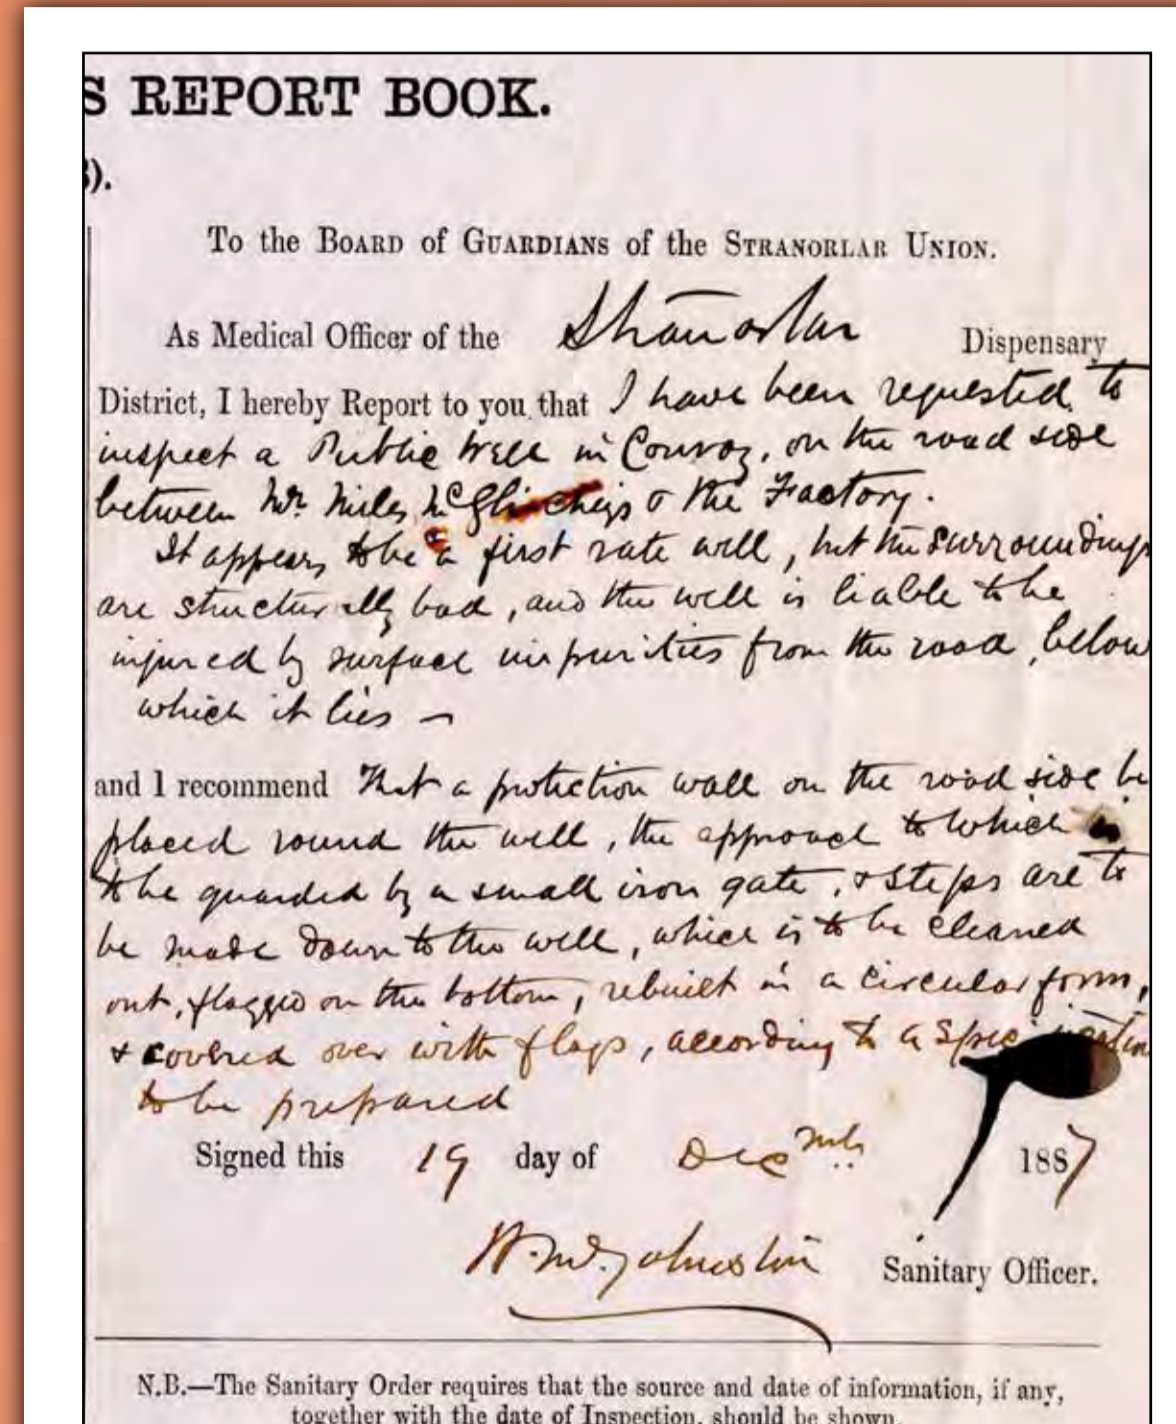 S REPORT BOOK.
).
To the BOARD of GUARDIANS of the STRANORLAR UNION.
As Medical Officer of the Stranorlar Dispensary
District, I hereby Report to you that I have been requested to
inspect a Public Well in Convoy, on the road side
between Mr. Miles McGlincheys & the Factory.
It appears to be a first rate well, but the surroundings
are structurally bad, and the well is liable to be
injured by surface impurities from the road, below
which it lies –
and I recommend That a protection wall on the road side be
placed round the well, the approach to which is
to be guarded by a small iron gate, & steps are to
be made down to the well, which is to be cleaned
out, flagged on the bottom, rebuilt in a circular form,
& covered over with flags, according to a specification
to be prepared
Signed this 19 day of Decmb. 1887
Johnston Sanitary Officer.
N.B.—The Sanitary Order requires that the source and date of information, if any,
together with the date of Inspection, should be shown.